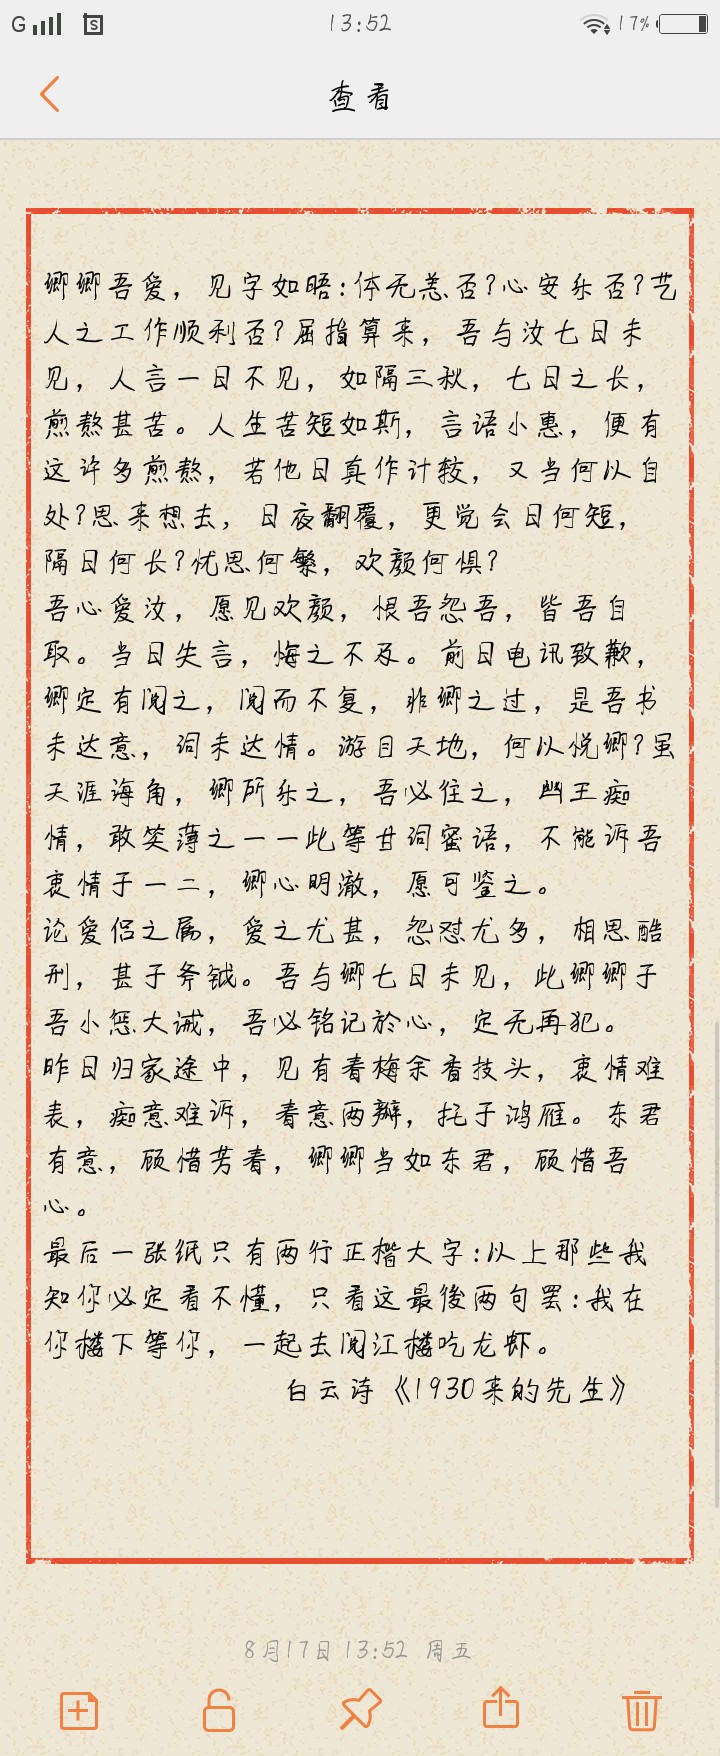 G
13:52
17%
查看
卿卿吾爱，见字如晤:体无恙否?心安乐否?艺
人之工作顺利否?屈指算来，吾与汝七日未
见，人言一日不见，如隔三秋，七日之长，
煎熬甚苦。人生苦短如斯，言语小惠，便有
这许多煎熬，若他日真作计较，又当何以自
处?思来想去，日夜翻覆，更觉会日何短，
隔日何长?忧思何繁，欢颜何惧?
吾心爱汝，愿见欢颜，恨吾怨吾，皆吾自
取。当日失言，悔之不及。前日电讯致歉，
卿定有阅之，阅而不复，非卿之过，是吾书
未达意，词未达情。游目天地，何以悦卿?虽
天涯海角，卿所乐之，吾必往之，幽王痴
情，敢笑薄之一一此等甘词蜜语，不能诉吾
衷情于一二，卿心明澈，愿可鉴之。
论爱侣之属，爱之尤甚，怨怼尤多，相思酷
刑，甚于斧钺。吾与卿七日未见，此卿卿于
吾小惩大诫，吾必铭记於心，定无再犯。
昨日归家途中，见有春梅余香技头，衷情难
表，痴意难诉，春意两瓣，托于鸿雁。东君
有意，顾惜芳春，卿卿当如东君，顾惜吾
心。
最后一张纸只有两行正楷大字:以上那些我
知你必定看不懂，只看这最後两句罢:我在
你楼下等你，一起去阅江楼吃龙虾。
白云诗《1930来的先生》
8月17日 13:52 周五